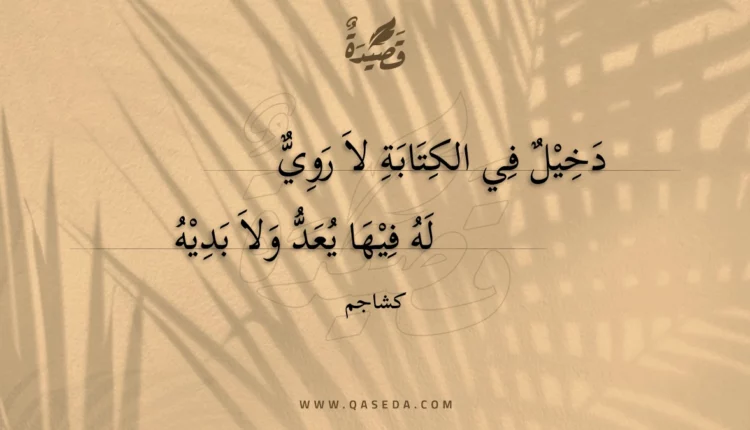 قَصِيْدَةٌ
دَخِيْلٌ فِي الكِتَابَةِ لاَ رَوِيٌّ
لَهُ فِيْهَا يُعَدُّ وَلاَ بَدِيْهُ
كشاجم
WWW.QASEDA.COM